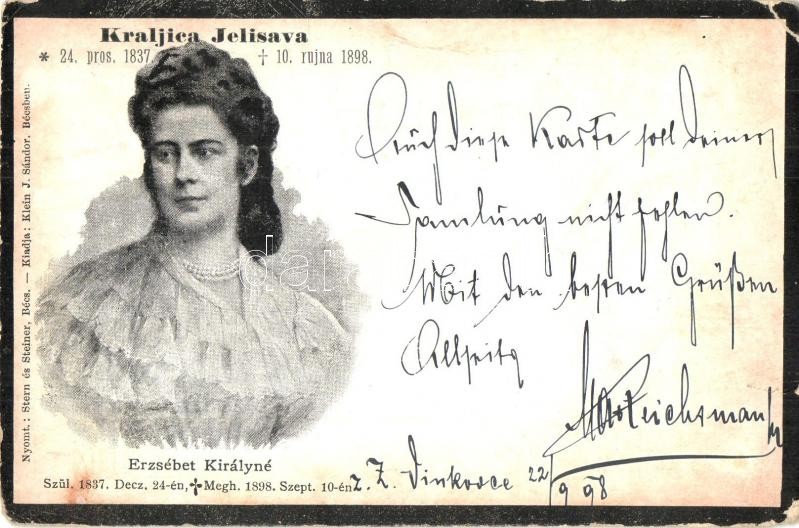 Kraljica Jelisava
* 24. pros. 1837. † 10. rujna 1898.
Auch diese Karte soll Deiner
Samlung nicht fehlen.
Mit den besten Grüßen
Allseits
Reichsmann
z. Z. Vinkovce 22/9 98
Erzsébet Királyné
Szül. 1837. Decz. 24-én, ✝ Megh. 1898. Szept. 10-én
Nyomt.: Stern és Steiner, Bécs. — Kiadja: Klein J. Sándor, Bécsben.